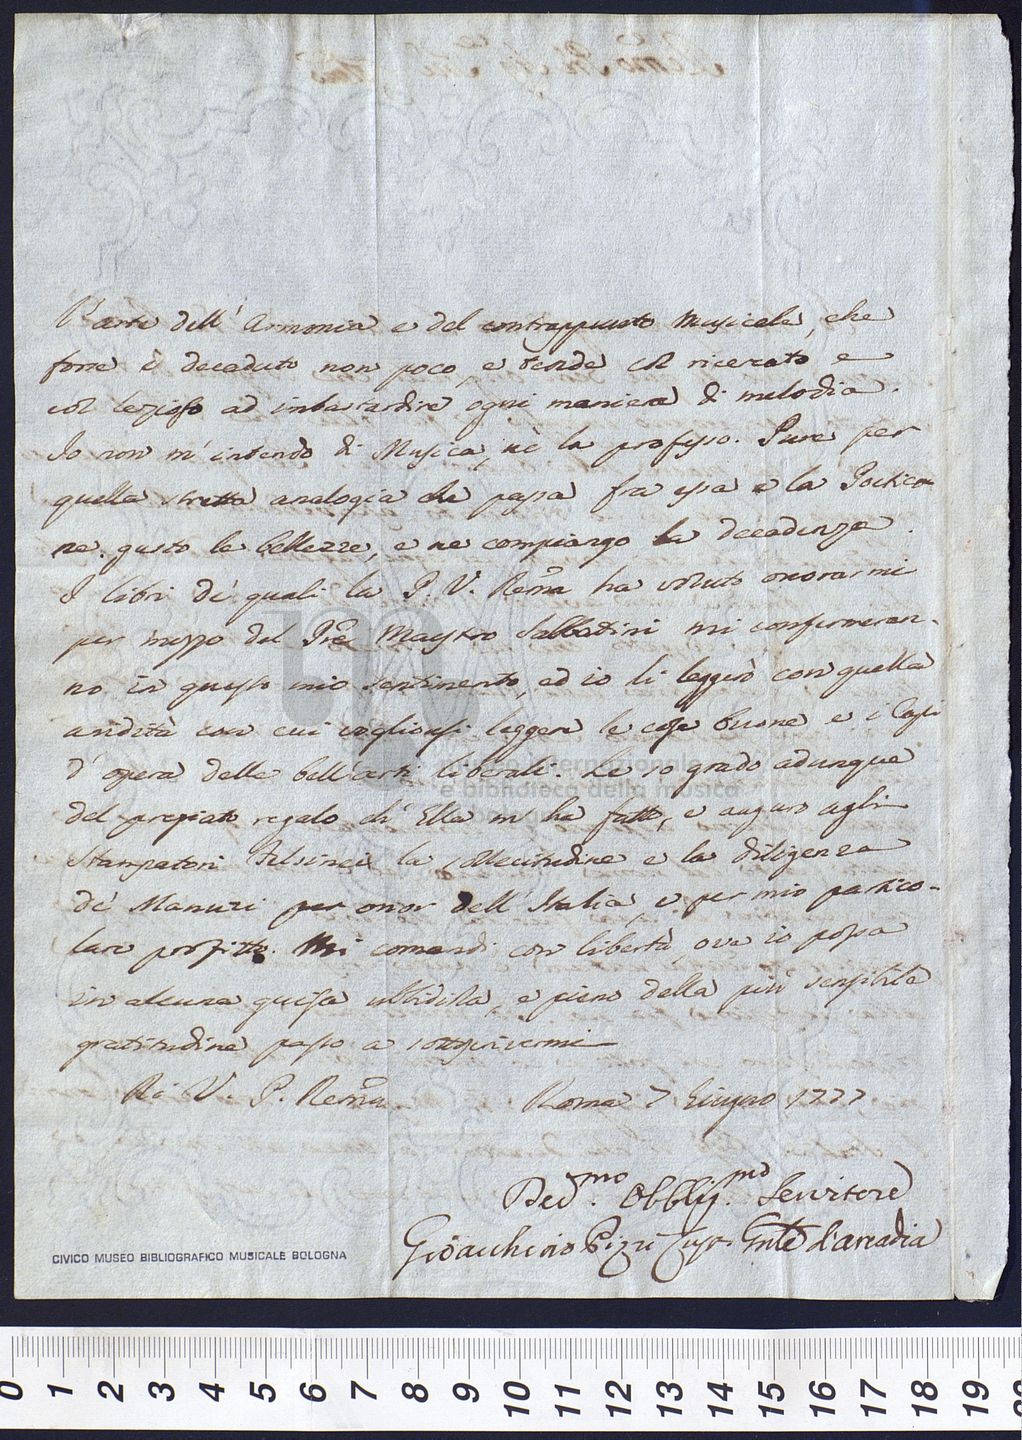 l'arte dell'Armonia e del contrappunto Musicale, che
forse è decaduto non poco, e tende col ricercato e
col lezioso ad imbastardire ogni maniera di melodia.
Io non m'intendo di Musica, nè la professo. Pure per
quella stretta analogia che passa fra essa e la Poetica
ne gusto le bellezze, e ne compiango la decadenza.
I libri de' quali la P. V. Rema ha voluto onorarmi
per mezzo del Pre Maestro Sabbatini mi confermeran-
no in questo mio sentimento, ed io li leggerò con quella
avidità con cui voglionsi leggere le cose buone e i Capi
d'opera delle bell'arti liberali. Le so grado adunque
del pregiato regalo ch'Ella m'ha fatto, e auguro agli
Stampatori Felsinei la sollecitudine e la diligenza
de' Manuzi per onor dell'Italia, e per mio partico-
lare profitto. Mi comandi con libertà, ove io possa
in alcuna guisa ubbidirla, e pieno della più sensibile
gratitudine passo a sottoscrivermi
Di V. P. Rema
Roma 7 Giugno 1777
Devmo. Obbligmo. Servitore
Gioacchino Pizzi Custode d'Arcadia
museo internazionale
e biblioteca della musica
CIVICO MUSEO BIBLIOGRAFICO MUSICALE BOLOGNA
0 1 2 3 4 5 6 7 8 9 10 11 12 13 14 15 16 17 18 19